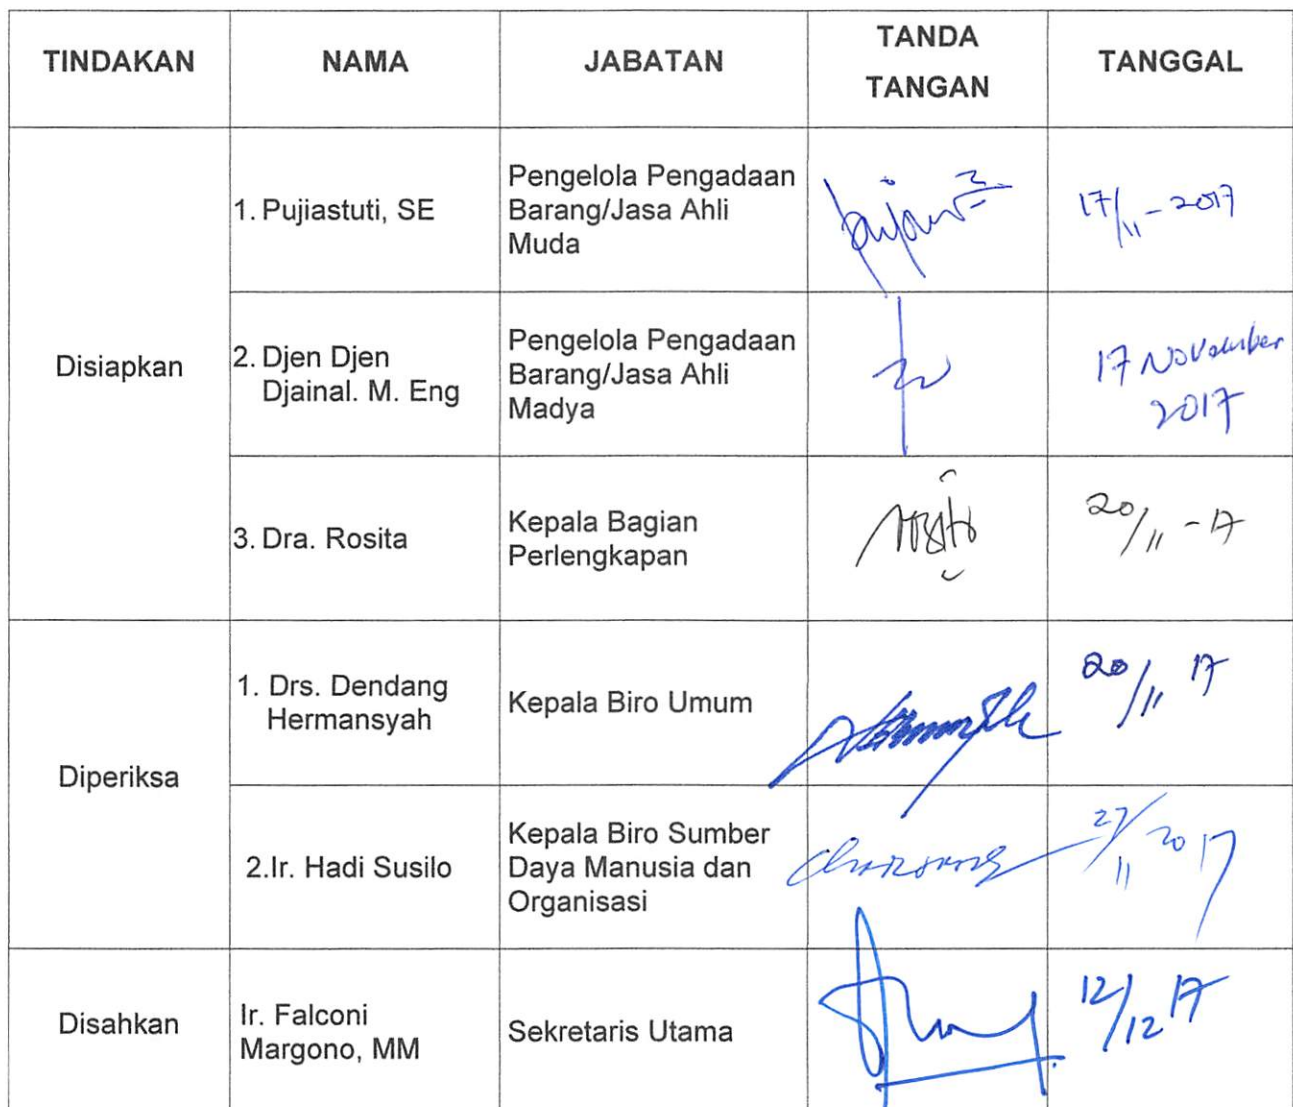 TINDAKAN
NAMA
JABATAN
TANDA
TANGAN
TANGGAL
Disiapkan
1. Pujiastuti, SE
Pengelola Pengadaan
Barang/Jasa Ahli
Muda
17/11-2017
2. Djen Djen
Djainal. M. Eng
Pengelola Pengadaan
Barang/Jasa Ahli
Madya
17 November
2017
3. Dra. Rosita
Kepala Bagian
Perlengkapan
20/11-17
Diperiksa
1. Drs. Dendang
Hermansyah
Kepala Biro Umum
20/11 17
2.Ir. Hadi Susilo
Kepala Biro Sumber
Daya Manusia dan
Organisasi
27/11 2017
Disahkan
Ir. Falconi
Margono, MM
Sekretaris Utama
12/12 17